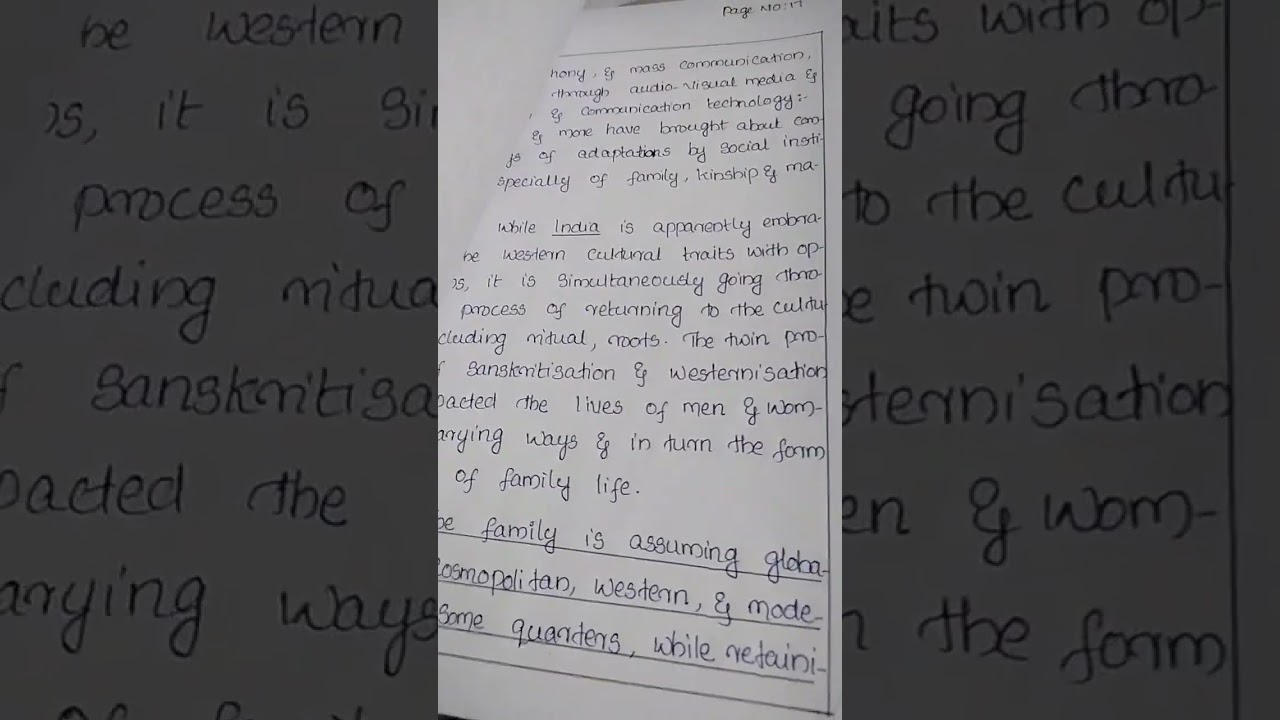 Page No: 17
hony, & mass communication,
through audio-visual media &
& communication technology:-
& more have brought about con-
js of adaptations by social insti-
specially of family, kinship & ma-
while India is apparently embra-
he western cultural traits with op-
os, it is simultaneously going thro-
process of returning to the cultu
cluding ritual, roots. The twin pro-
f sanskritisation & westernisation
pacted the lives of men & wom-
arying ways & in turn the form
of family life.
he family is assuming globa-
cosmopolitan, western, & mode-
some quarters, while retaini-